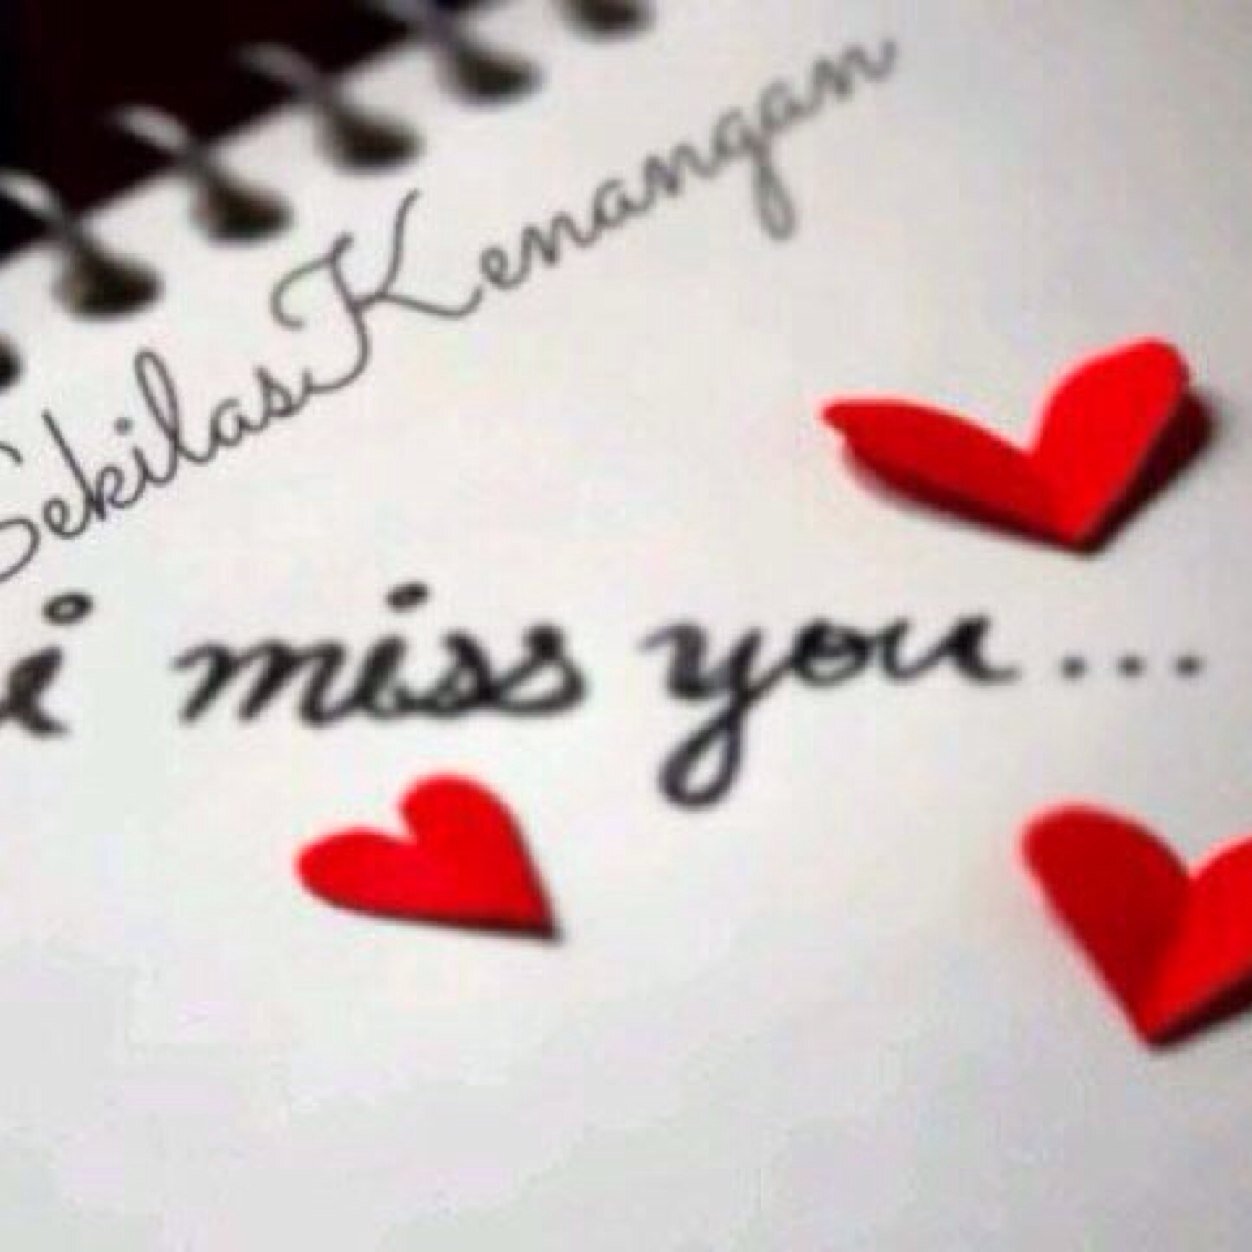 Sekilas Kenangan
i miss you...